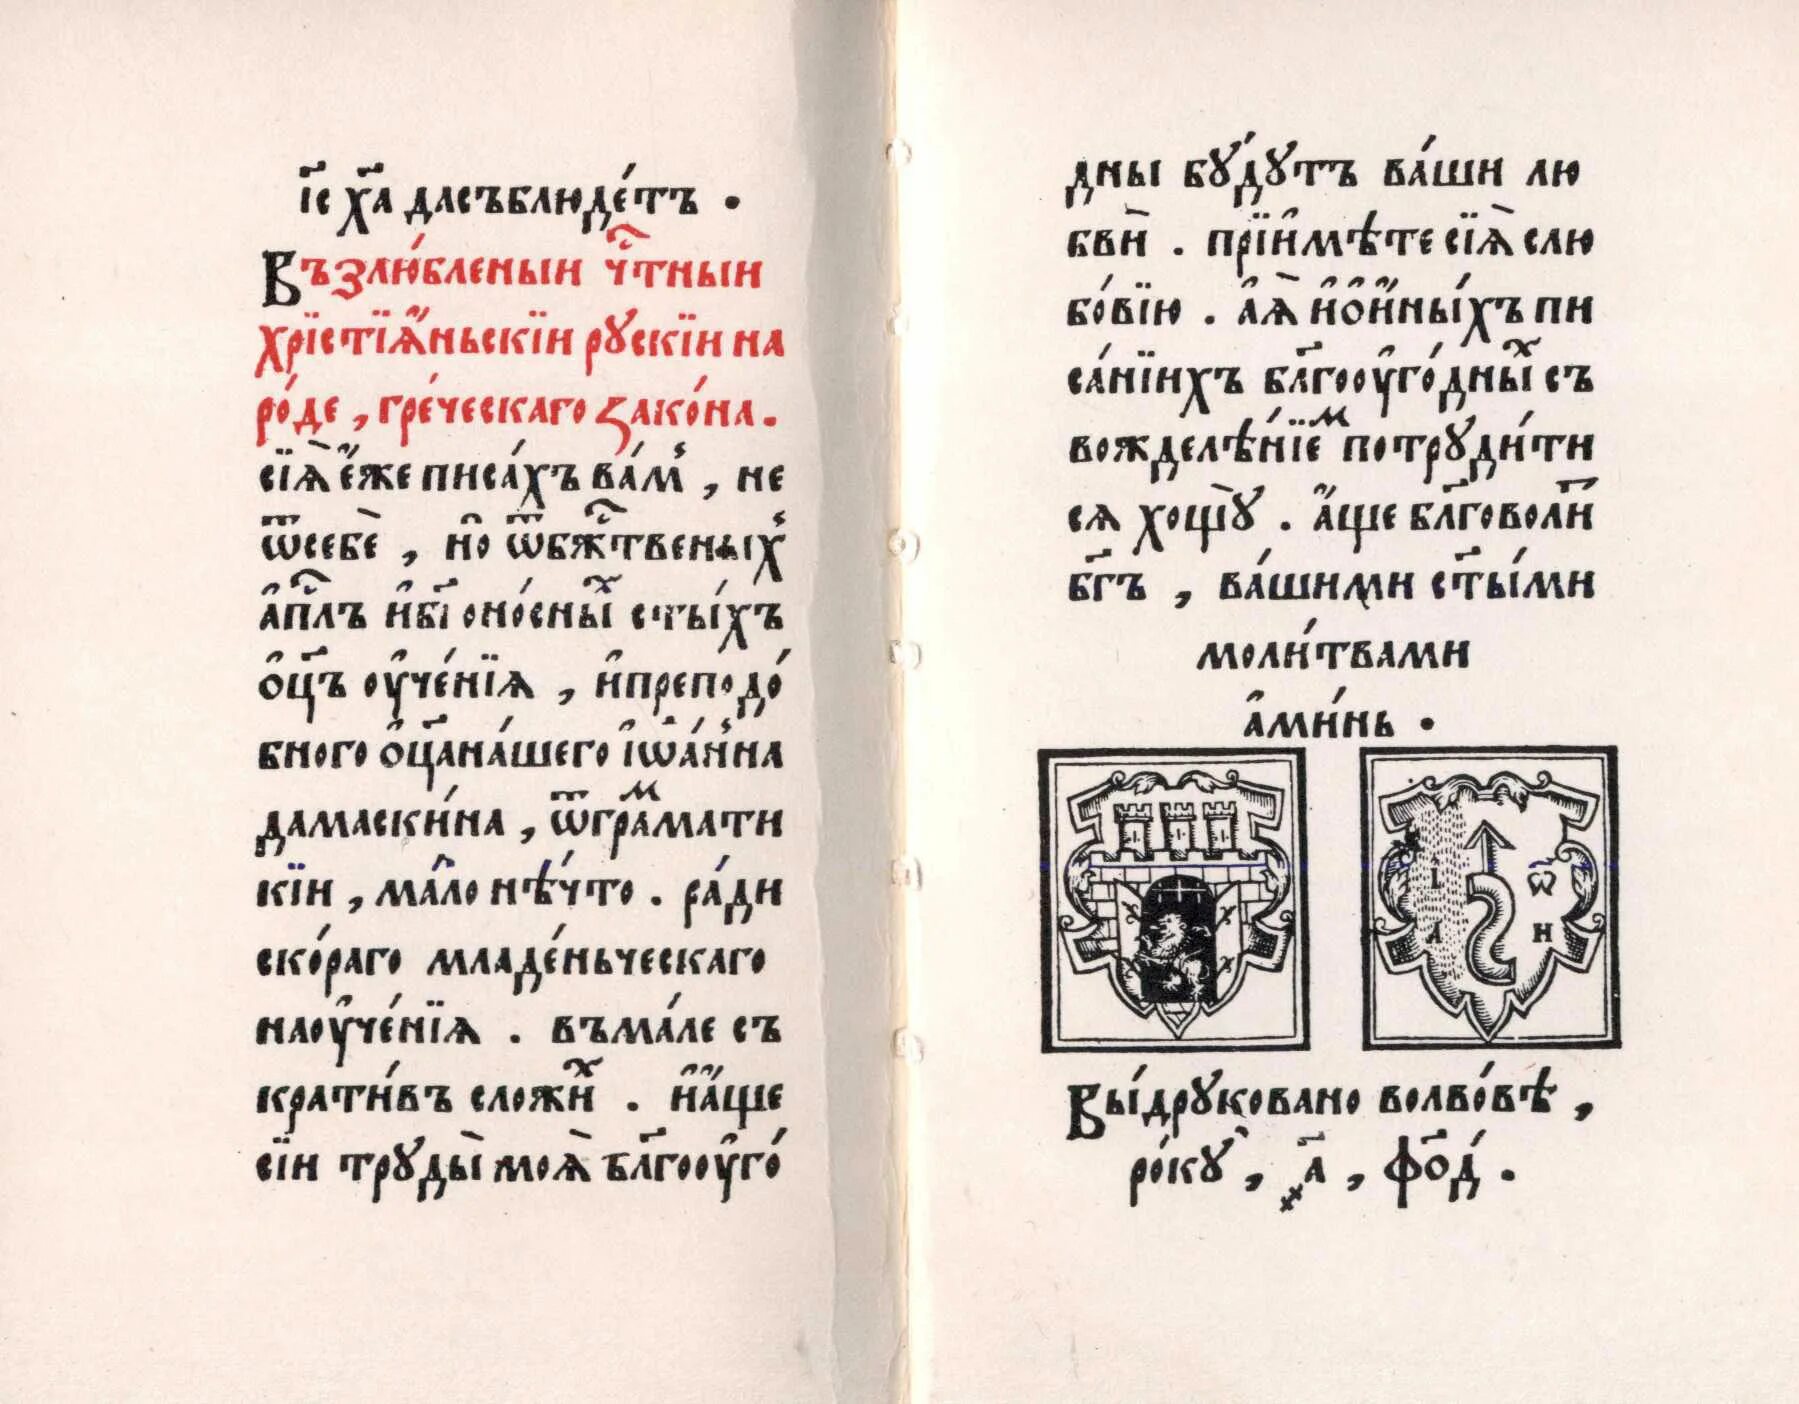 і҃с х҃а дасъблюде́тъ .
Възлю́бленыи ч҃тныи
хрїстїѧ́ньскїи рускїи на
ро́де , гре́ческаго зако́на .
сїѧ̀ е҆́же писа́хъ ва́м , не
ѿсебѐ , но̑ ѿбж҃твеныхъ
а҆п҃лъ и҆бг҃оно́сны́х ст҃ы́хъ
о҆ц҃ъ оу҆че́нїѧ , и҆преподо́
бного о҆ц҃ана́шего і҆ѡа́нна
дамаски́на , ѿгра́мати
кїи , ма̑ло нѣ́что . ра́ди
ско́раго младе́ньческаго
наоу҆че́нїѧ . въма́ле съ
крати́въ сложи́х . и҆а҆́ще
сїи труды̀ моѧ̀ бл҃гооу҆го́
дны бꙋ́дꙋтъ ва́ши лю
бвѝ . прїи҆мѣ́те сїѧ̀ слю
бо́вїю . а҆ѧ̀ и҆о҆и҆́ны́хъ пи
са́нїихъ бл҃гооу҆го́дны́х съ
вожделѣ́нїем потрꙋди́ти
сѧ хощꙋ̀ . а҆́ще бл҃говоли́т
бг҃ъ , ва́шими ст҃ы́ми
моли́твами
а҆ми́нь .
І Ѡ
А Н
Вы́дрꙋковано волво́вѣ ,
ро́кꙋ , ҂а҃ , фо҃д .